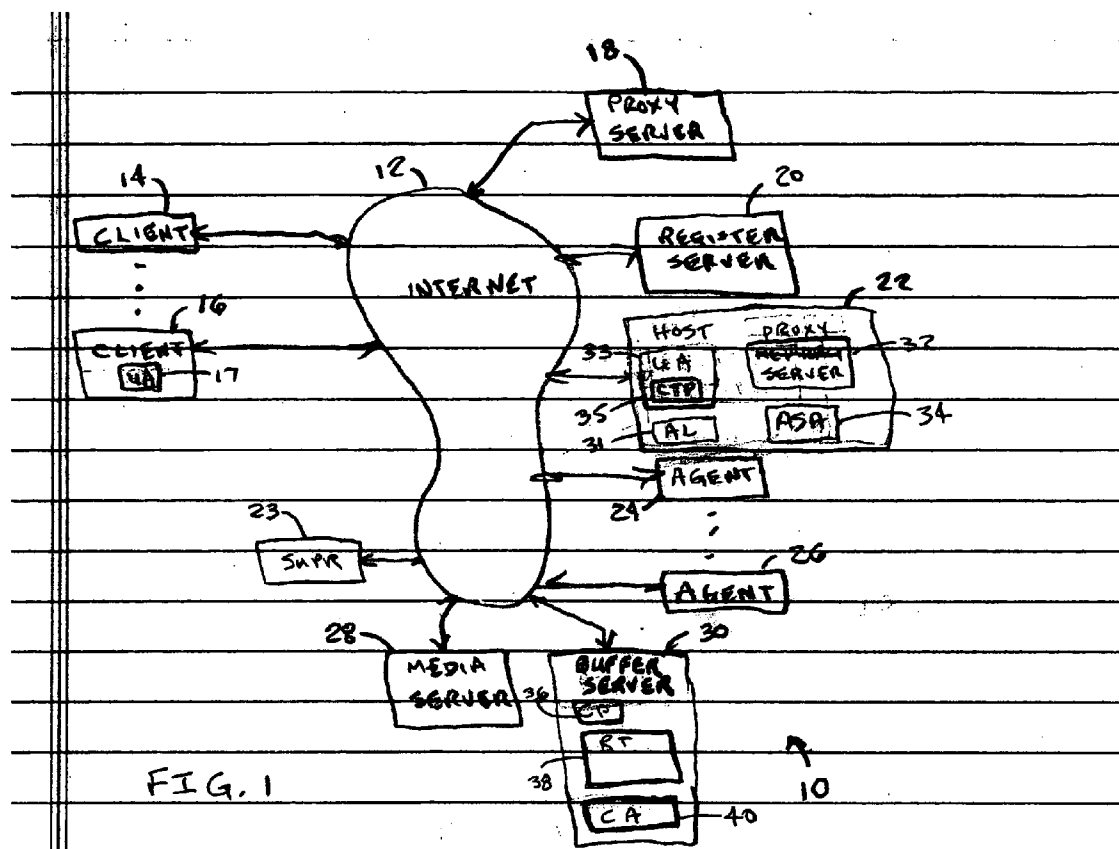 18
PROXY
SERVER
12
14
CLIENT
20
REGISTER
SERVER
INTERNET
16
CLIENT
UA
17
22
HOST
PROXY
33
UA
SERVER
32
CTP
35
31
AL
ASA
34
AGENT
24
23
SUPR
26
AGENT
28
MEDIA
SERVER
30
BUFFER
SERVER
36
CP
RT
38
CA
40
10
FIG. 1